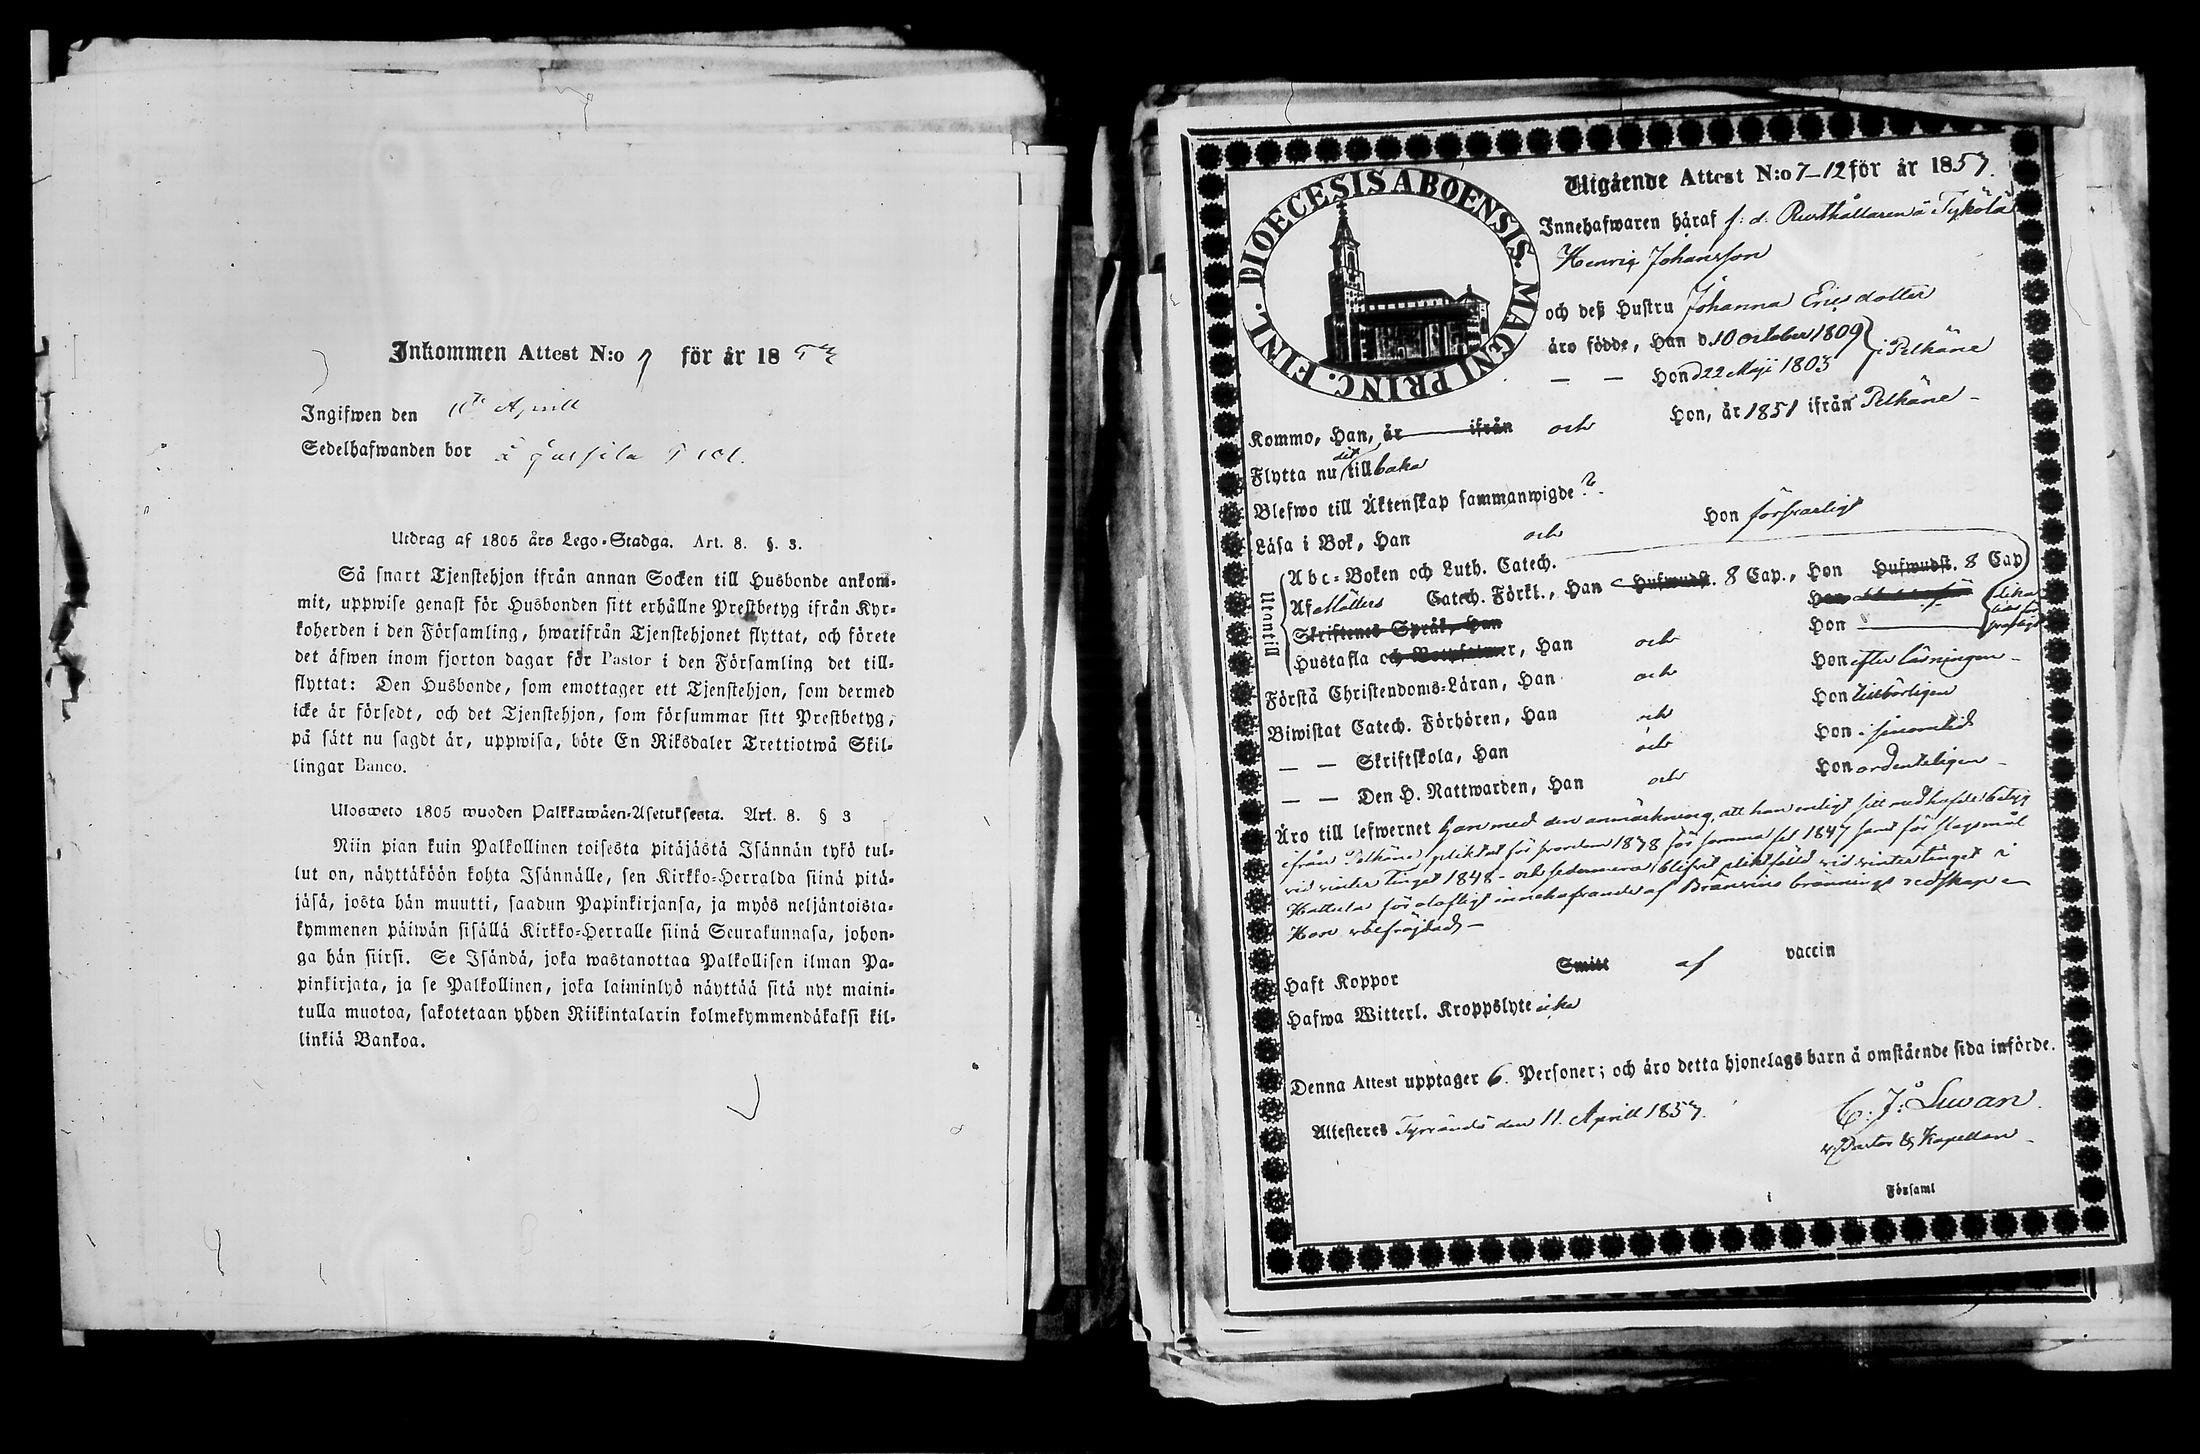 Inkommen Attest N:o 7 för år 18
Ingifwen den 11te Aprill
Sedelhafwanden bor å
Utdrag af 1805 års Lego-Stadga. Art. 8. §. 3.
Så snart Tjenstehjon ifrån annan Socken till Husbonde ankom-
mit, uppwise genast för Husbonden sitt erhållne Prestbetyg ifrån Kyr-
koherden i den Församling, hwarifrån Tjenstehjonet flyttat, och förete
det äfwen inom fjorton dagar för Pastor i den Församling det till-
flyttat: Den Husbonde, som emottager ett Tjenstehjon, som dermed
icke är försedt, och det Tjenstehjon, som försummar sitt Prestbetyg,
på sätt nu sagdt är, uppwisa, böte En Riksdaler Trettiotwå Skil-
lingar Banco.
Ulosweto 1805 wuoden Palkkawäen-Asetuksesta. Art. 8. § 3
Niin pian kuin Palkollinen toisesta pitäjästä Isännän tykö tul-
lut on, näyttäköön kohta Isännälle, sen Kirkko-Herralda siinä pitä-
jäsä, josta hän muutti, saadun Papinkirjansa, ja myös neljäntoista-
kymmenen päiwän sisällä Kirkko-Herralle siinä Seurakunnasa, johon-
ga hän siirsi. Se Isändä, joka wastanottaa Palkollisen ilman Pa-
pinkirjata, ja se Palkollinen, joka laiminlyö näyttää sitä nyt maini-
tulla muotoa, sakotetaan yhden Riikintalarin kolmekymmendäkaksi kil-
linkiä Bankoa.
DIOECESIS ABOENSIS. MAGNI PRINC. FINL.
Utgående Attest N:o 7-12 för år 1857.
Innehafwaren häraf f: d: Rusthållaren å Tykölä
Henric Johansson
och deß Hustru Johanna Ericsdotter
äro födde, Han d. 10 october 1809 } i Pelkäne
— — Hon d 22 Maji 1803
Kommo, Han, är ifrån och Hon, år 1851 ifrån Pelkäne -
Flytta nu dit tillbaka
Blefwo till Äktenskap sammanwigde ?.
Läsa i Bok, Han och Hon försvarligt
Utantill
Abc-Boken och Luth. Catech.
Af Möllers Catech. Förkl., Han Hufwudst. 8 Cap., Hon Hufwudst. 8 Cap
Skriftenes Språk, Han Hon
Hustafla och Botpsalmer, Han och Hon
Förstå Christendoms-Läran, Han och Hon efter läsningen -
Biwistat Catech. Förhören, Han och Hon tillbörligen
— — Skriftskola, Han och Hon i sinom tid
— — Den H. Nattwarden, Han och Hon ordenteligen -
Äro till lefwernet Han med den anmärkning, att han enligt sitt medhafde betyg
ifrån Pelkäne pliktat för 1838 för samma fel 1847 samt för slagsmål
vid vinter tinget 1848 - och sedermera blifvit pliktfälld vid vintertinget i
Hattula för olofligt innehafvande af Bränvins brännings redskap
Hon obefräjdad -
Haft Koppor Smitt af vaccin
Hafwa Witterl. Kroppslyte icke
Denna Attest upptager 6. Personer; och äro detta hjonelags barn å omstående sida införde.
Attesteres Tyrvändö den 11. Aprill 1857.
C: J: Luvan
v Pastor & Kapellan -
i Församl